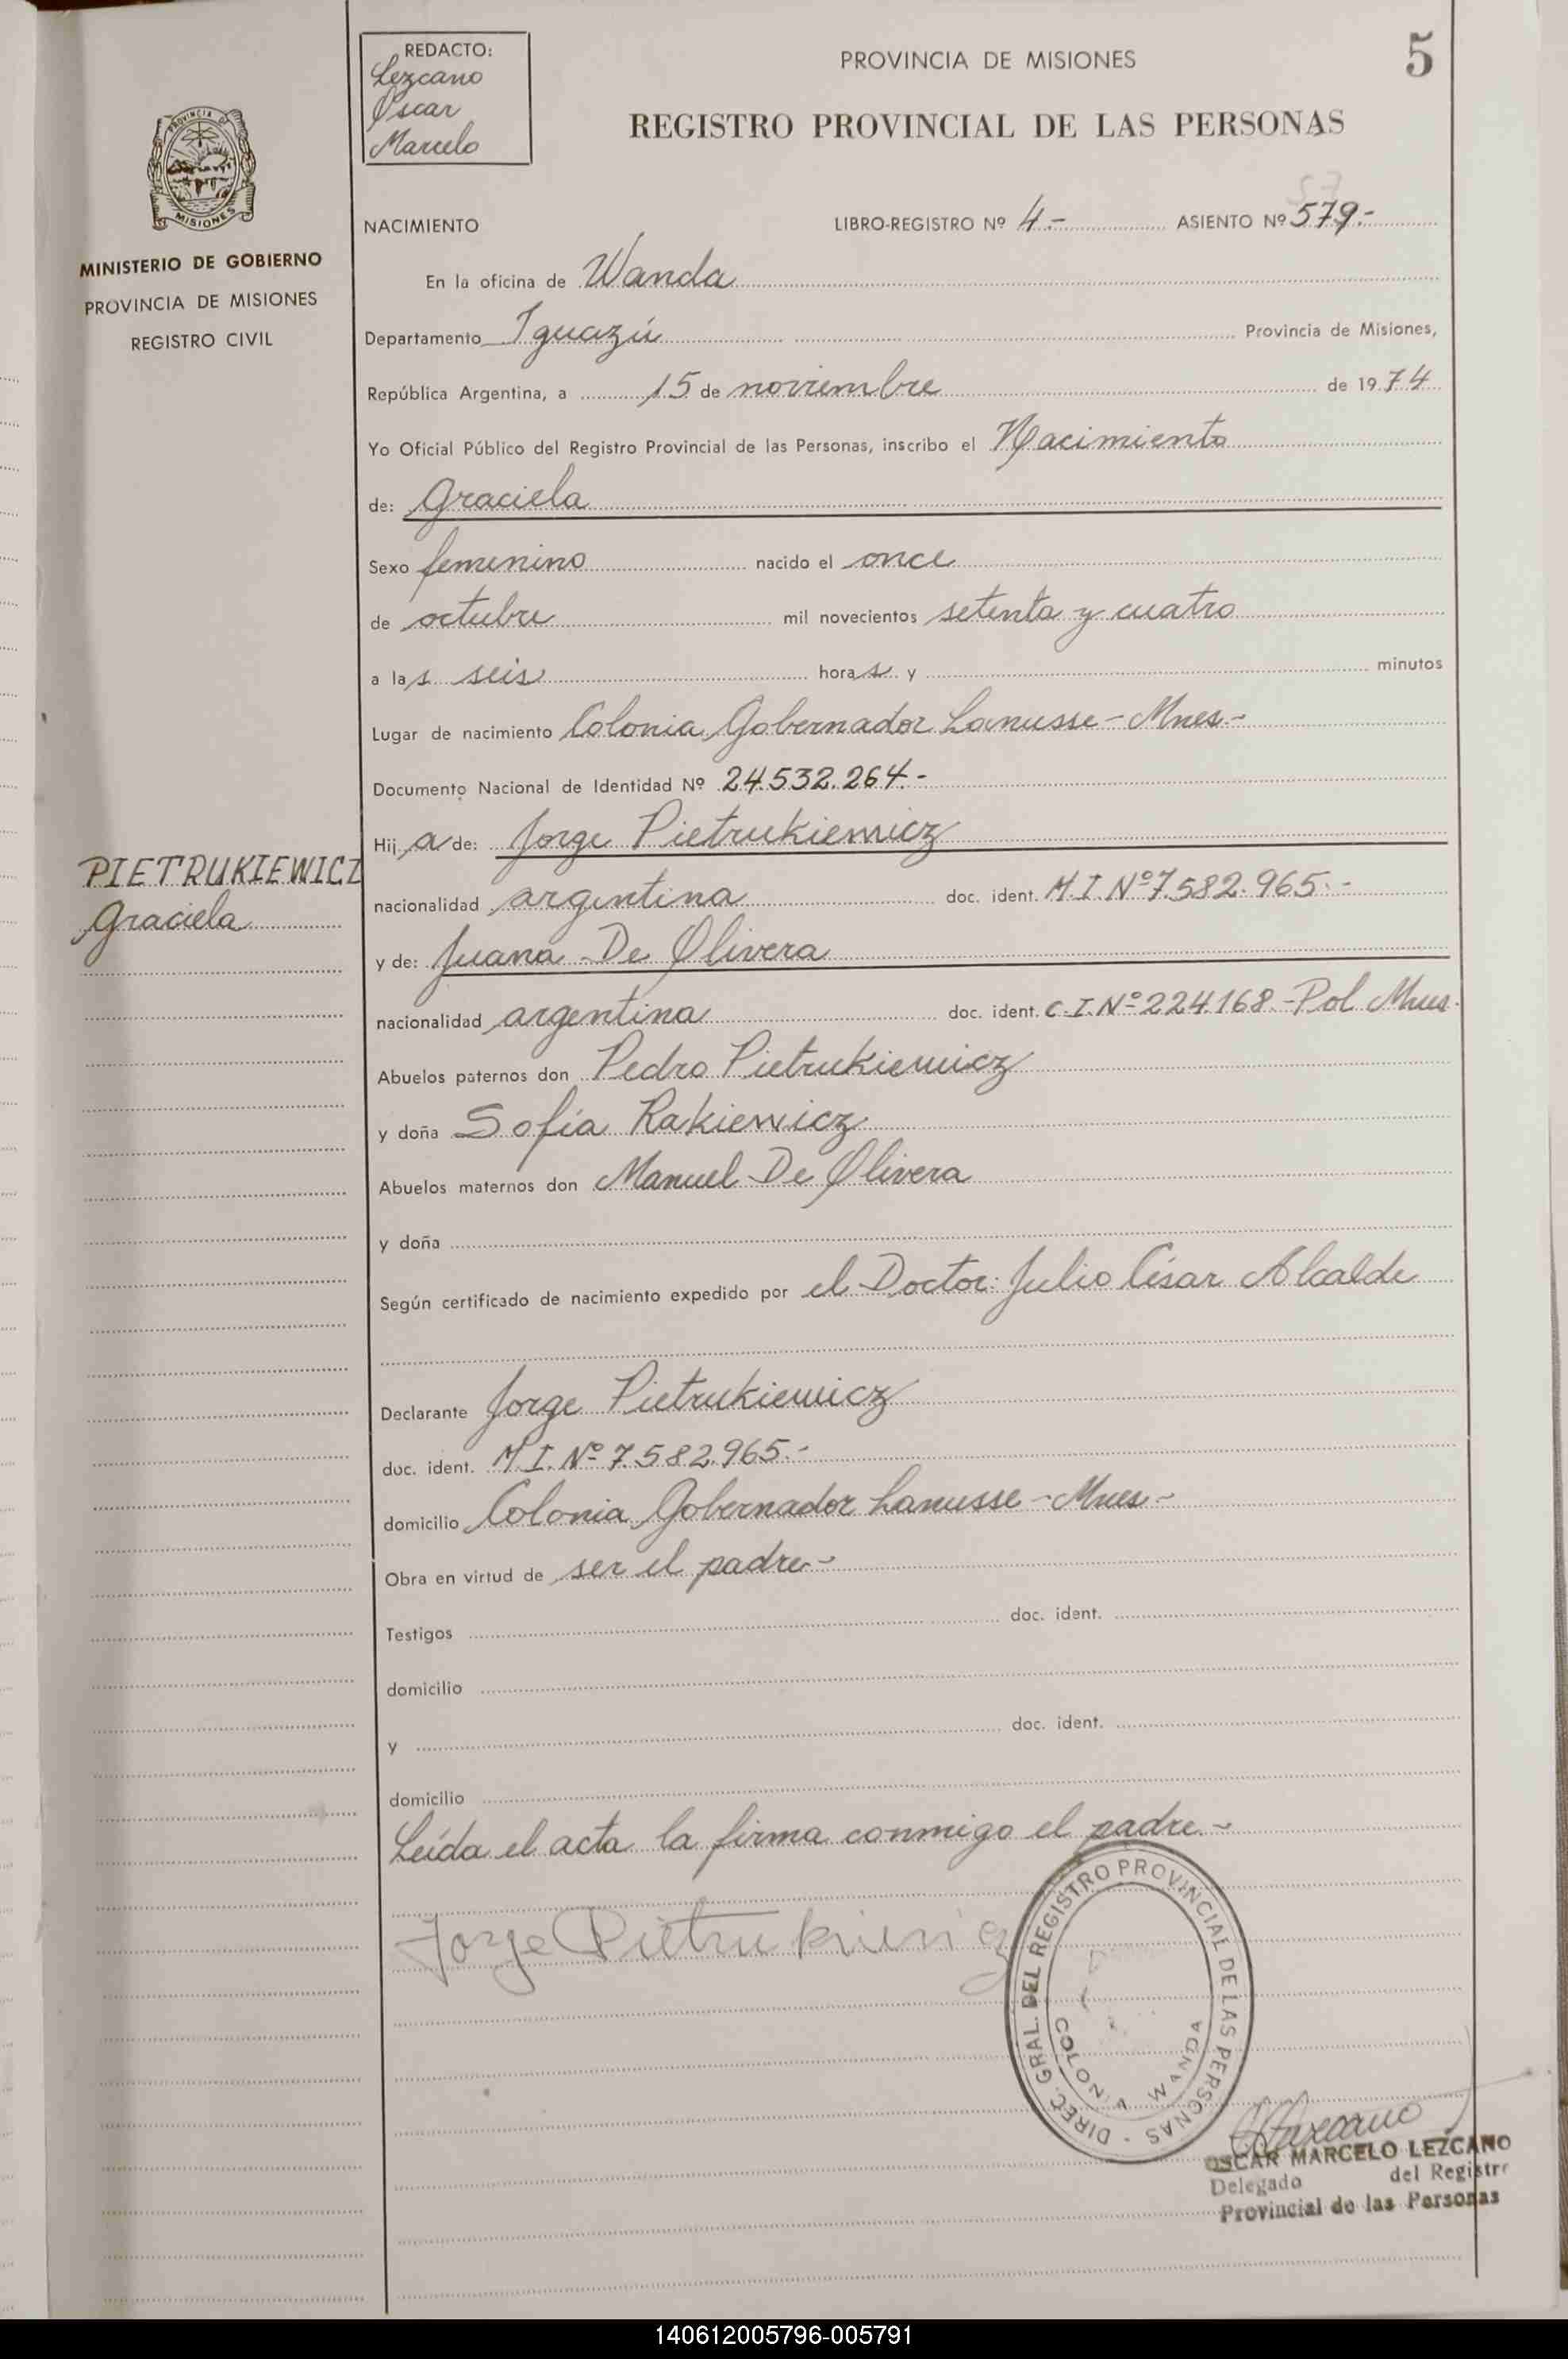 5
REDACTO:
Lezcano
Oscar
Marcelo
PROVINCIA DE MISIONES
REGISTRO PROVINCIAL DE LAS PERSONAS
PROVINCIA DE
MISIONES
MINISTERIO DE GOBIERNO
PROVINCIA DE MISIONES
REGISTRO CIVIL
57
NACIMIENTO LIBRO-REGISTRO Nº 4.- ASIENTO Nº 579.-
En la oficina de Wanda
Departamento Iguazú Provincia de Misiones,
República Argentina, a 15 de noviembre de 1974
Yo Oficial Público del Registro Provincial de las Personas, inscribo el Nacimiento
de: Graciela
Sexo femenino nacido el once
de octubre mil novecientos setenta y cuatro
a las seis horas y minutos
Lugar de nacimiento Colonia Gobernador Lanusse - Mnes-
Documento Nacional de Identidad Nº 24.532.264.-
Hija de: Jorge Pietrukiewicz
PIETRUKIEWICZ
Graciela
nacionalidad argentina doc. ident. M.I.Nº7.582.965.-
y de: Juana De Olivera
nacionalidad argentina doc. ident. C.I.Nº224.168.-Pol. Mnes.
Abuelos paternos don Pedro Pietrukiewicz
y doña Sofía Rakiewicz
Abuelos maternos don Manuel De Olivera
y doña
Según certificado de nacimiento expedido por el Doctor: Julio César Alcalde
Declarante Jorge Pietrukiewicz
doc. ident. M.I. Nº 7.582.965.-
domicilio Colonia Gobernador Lanusse - Mnes-
Obra en virtud de ser el padre-
Testigos doc. ident.
domicilio
y doc. ident.
domicilio
Leída el acta la firma conmigo el padre.-
Jorge
DIREC. GRAL. DEL REGISTRO PROVINCIAL DE LAS PERSONAS -
COLONIA WANDA
OSCAR MARCELO LEZCANO
Delegado del Registro
Provincial de las Personas
140612005796-005791